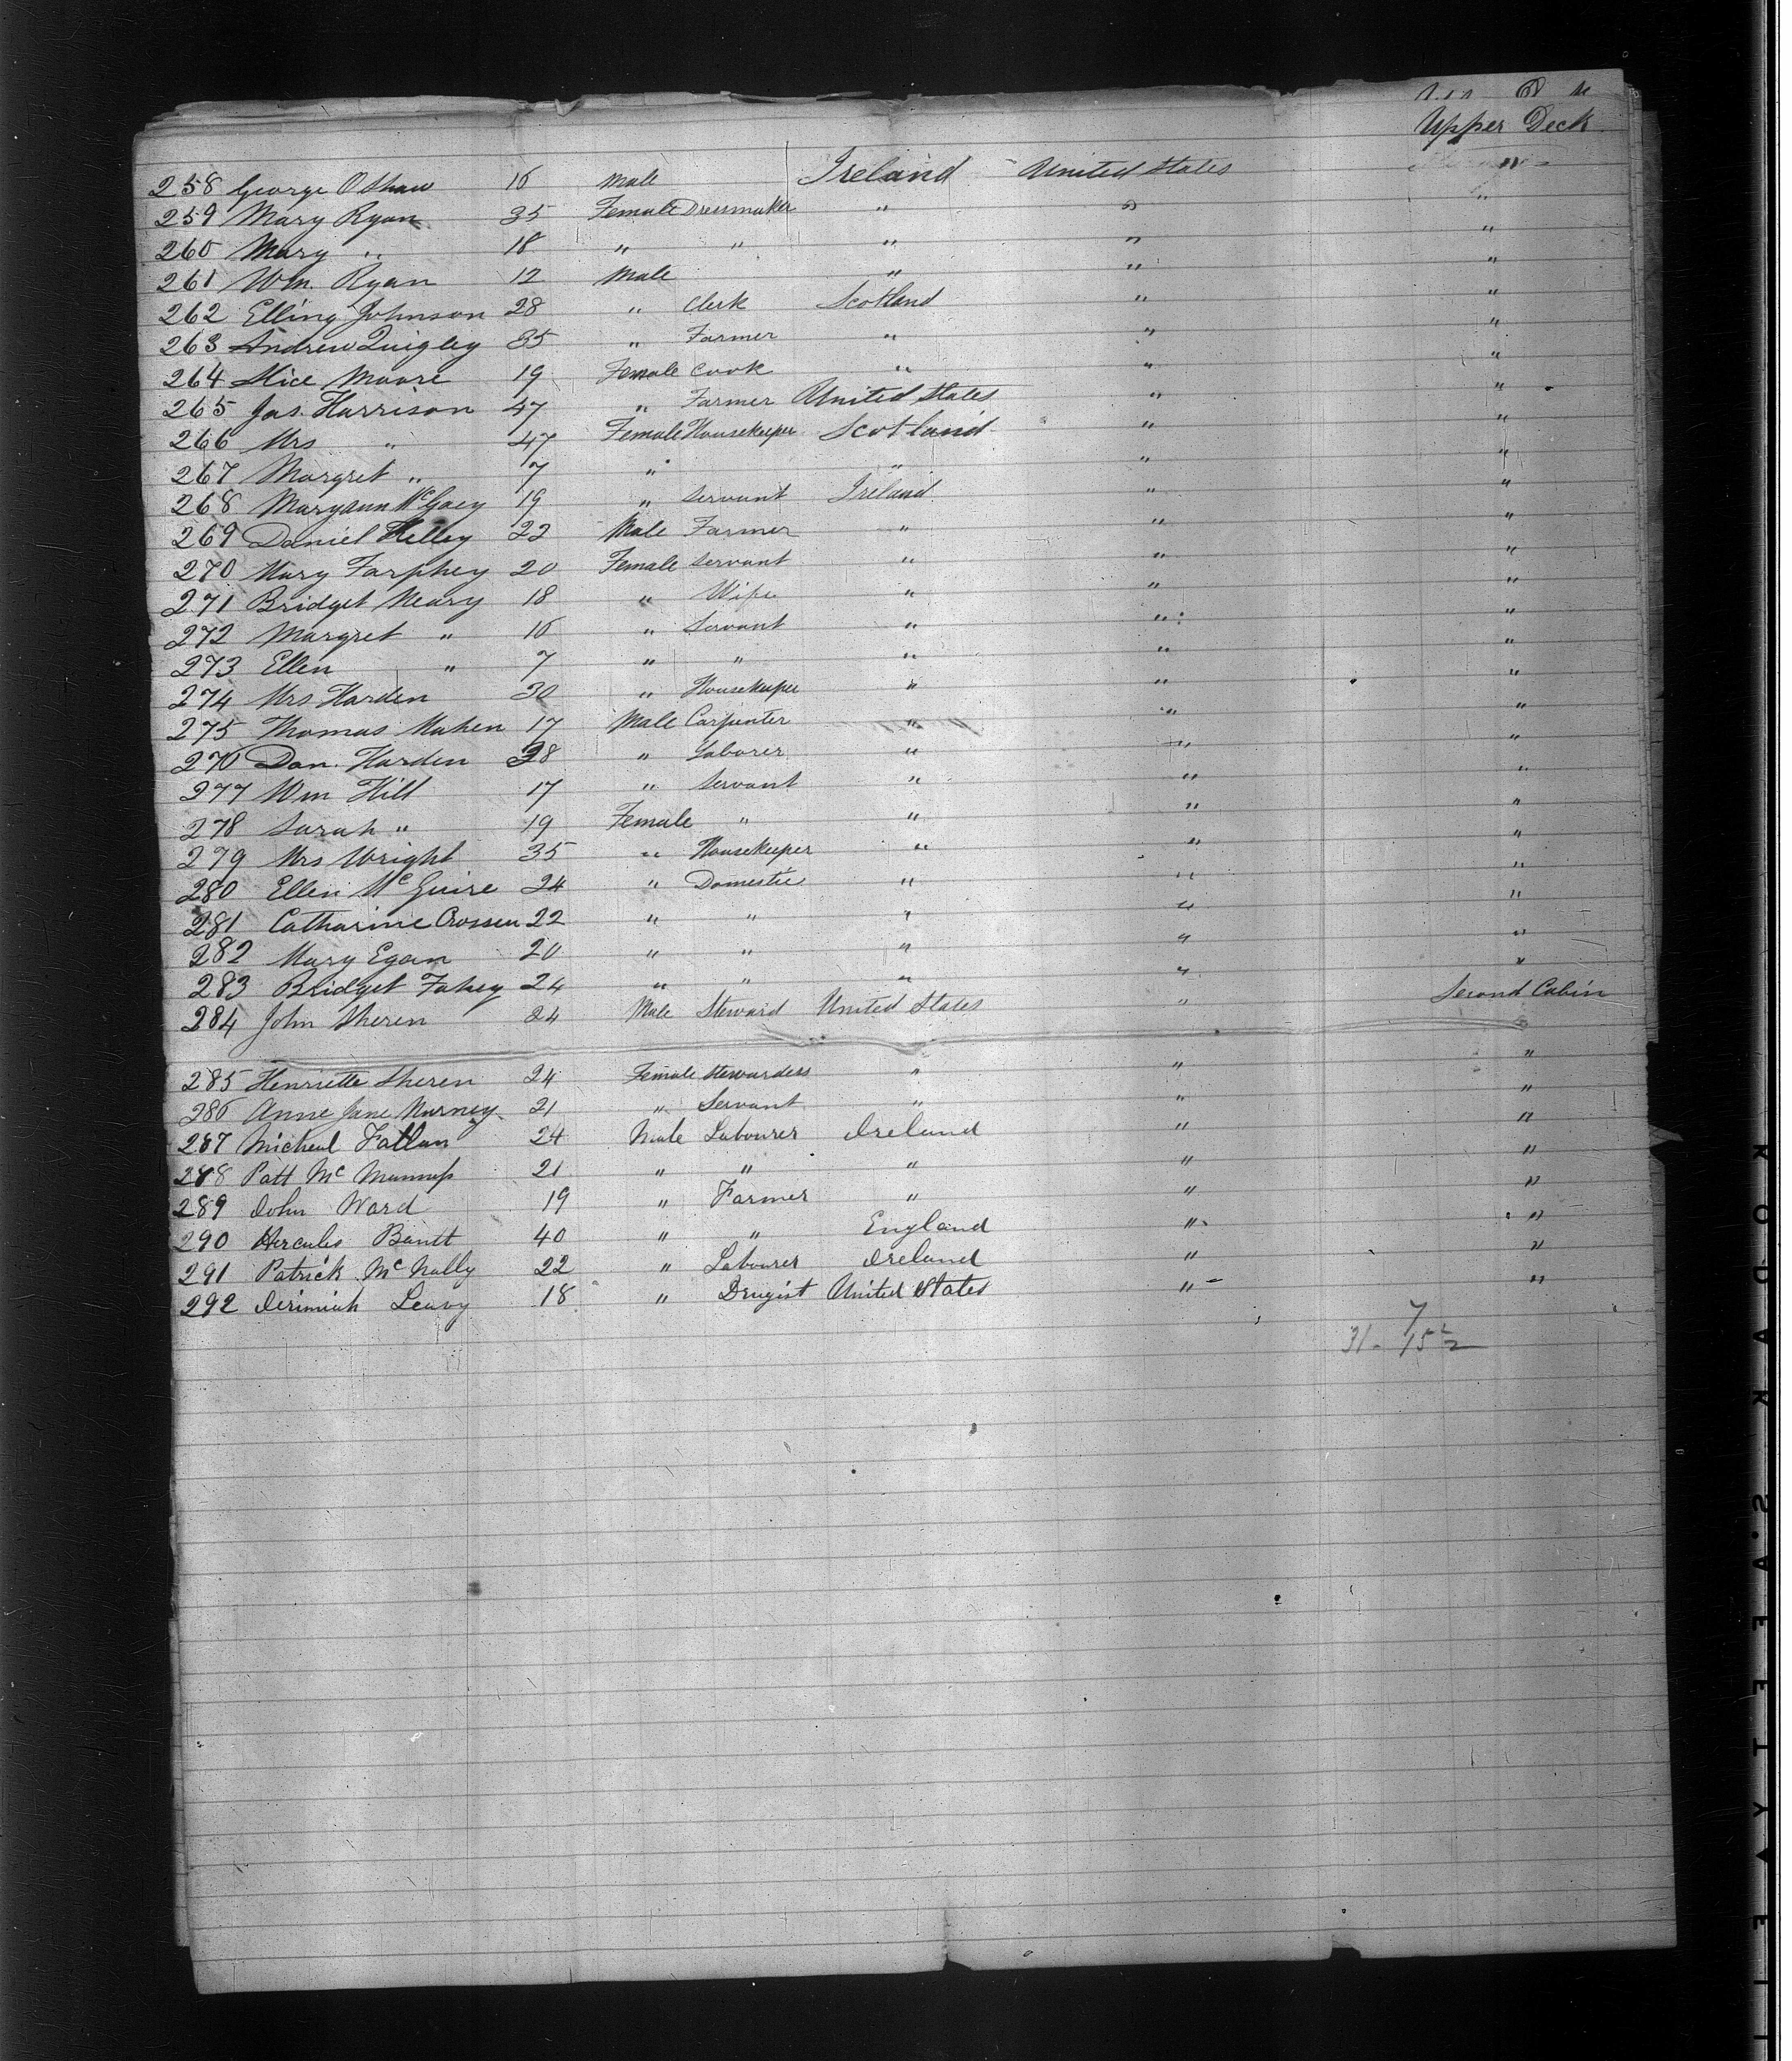 Upper Deck
258 George O Shaw 16 Male Ireland United States "
259 Mary Ryan 35 Female Dressmaker " " "
260 Mary " 18 " " " " "
261 Wm. Ryan 12 Male " " "
262 Elling Johnson 28 " Clerk Scotland " "
263 Andrew Quigley 35 " Farmer " " "
264 Alice Moore 19 Female Cook " " "
265 Jas. Harrison 47 " Farmer United States " "
266 Mrs " 47 Female Housekeeper Scotland " "
267 Margret " 7 " " " "
268 Maryann McGaey 19 " Servant Ireland " "
269 Daniel Kelley 22 Male Farmer " " "
270 Mary Farphey 20 Female Servant " " "
271 Bridget Neary 18 " Wife " " "
272 Margret " 16 " Servant " " "
273 Ellen " 7 " " " " "
274 Mrs Harden 30 " Housekeeper " " "
275 Thomas Mahen 17 Male Carpenter " " "
276 Dan. Harden 38 " Laborer " " "
277 Wm Hill 17 " Servant " " "
278 Sarah " 19 Female " " " "
279 Mrs Wright 35 " Housekeeper " " "
280 Ellen McGuire 24 " Domestic " " "
281 Catharine Crossen 22 " " " " "
282 Mary Egan 20 " " " " "
283 Bridget Fahey 24 " " " " "
284 John Sheren 24 Male Steward United States " Second Cabin
285 Henriette Sheren 24 Female Stewardess " " "
286 Anne Jane Nurney 21 " Servant " " "
287 Micheal Fallan 24 Male Labourer Ireland " "
288 Patt Mc 21 " " " " "
289 John Ward 19 " Farmer " " "
290 Hercules 40 " " England " "
291 Patrick McNally 22 " Labourer Ireland " "
292 Jerimiah Leavy 18 " Drugist United States " "
7
31 - 15 1/2
KODAK